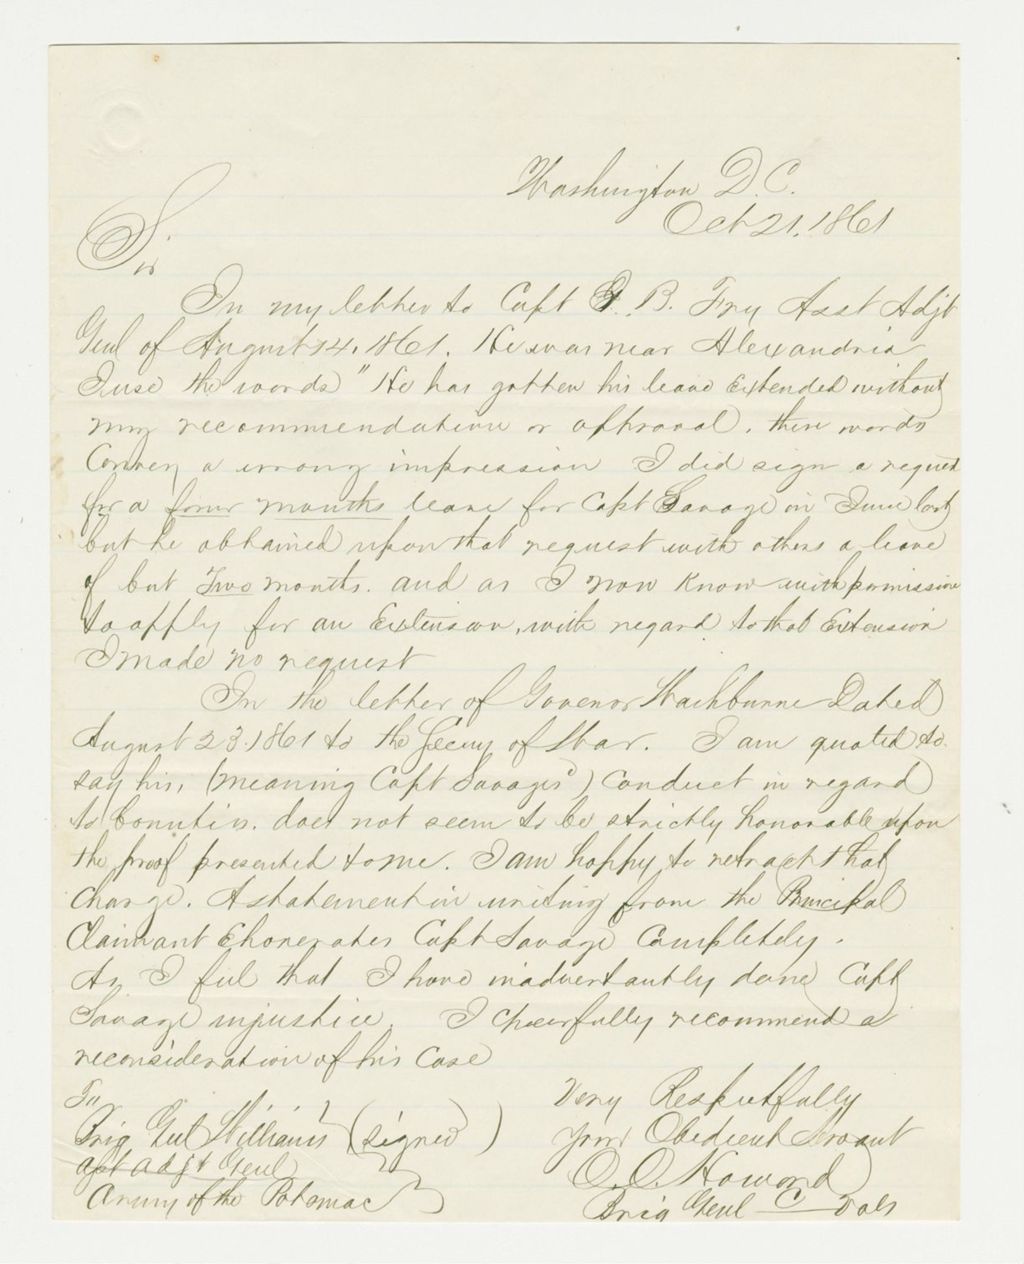 Washington D.C.
Oct 21. 1861
Sir
In my letter to Capt J. B. Fry Asst Adjt
Genl of August 14. 1861. He was near Alexandria
I use the words "He has gotten his leave Extended without
my recommendation or approval. these words
Convey a wrong impression I did sign a request
for a four months leave for Capt Savage in June last
but he obtained upon that request with others a leave
of but Two months. and as I now Know with permission
to apply for an Extension, with regard to that Extension
I made no request
In the letter of Govenor Washburne Dated
August 23. 1861 to the Secry of War. I am quoted to
say his, (meaning Capt Savages') Conduct in regard
to does not seem to be strictly honorable upon
the proof presented to me. I am happy to retract that
Charge. A statement in writing from the Principal
Claimant Exonerates Capt Savage Completely.
As I feel that I have inadvertantly done Capt
Savage injustice. I cheerfully recommend a
reconsideration of his Case
To
Brig Genl Williams (signed)
Asst Adjt Genl
Army of the Potomac
Very Respectfully
Your Obedient Servant
O. O. Howard
Brig Genl C Vols